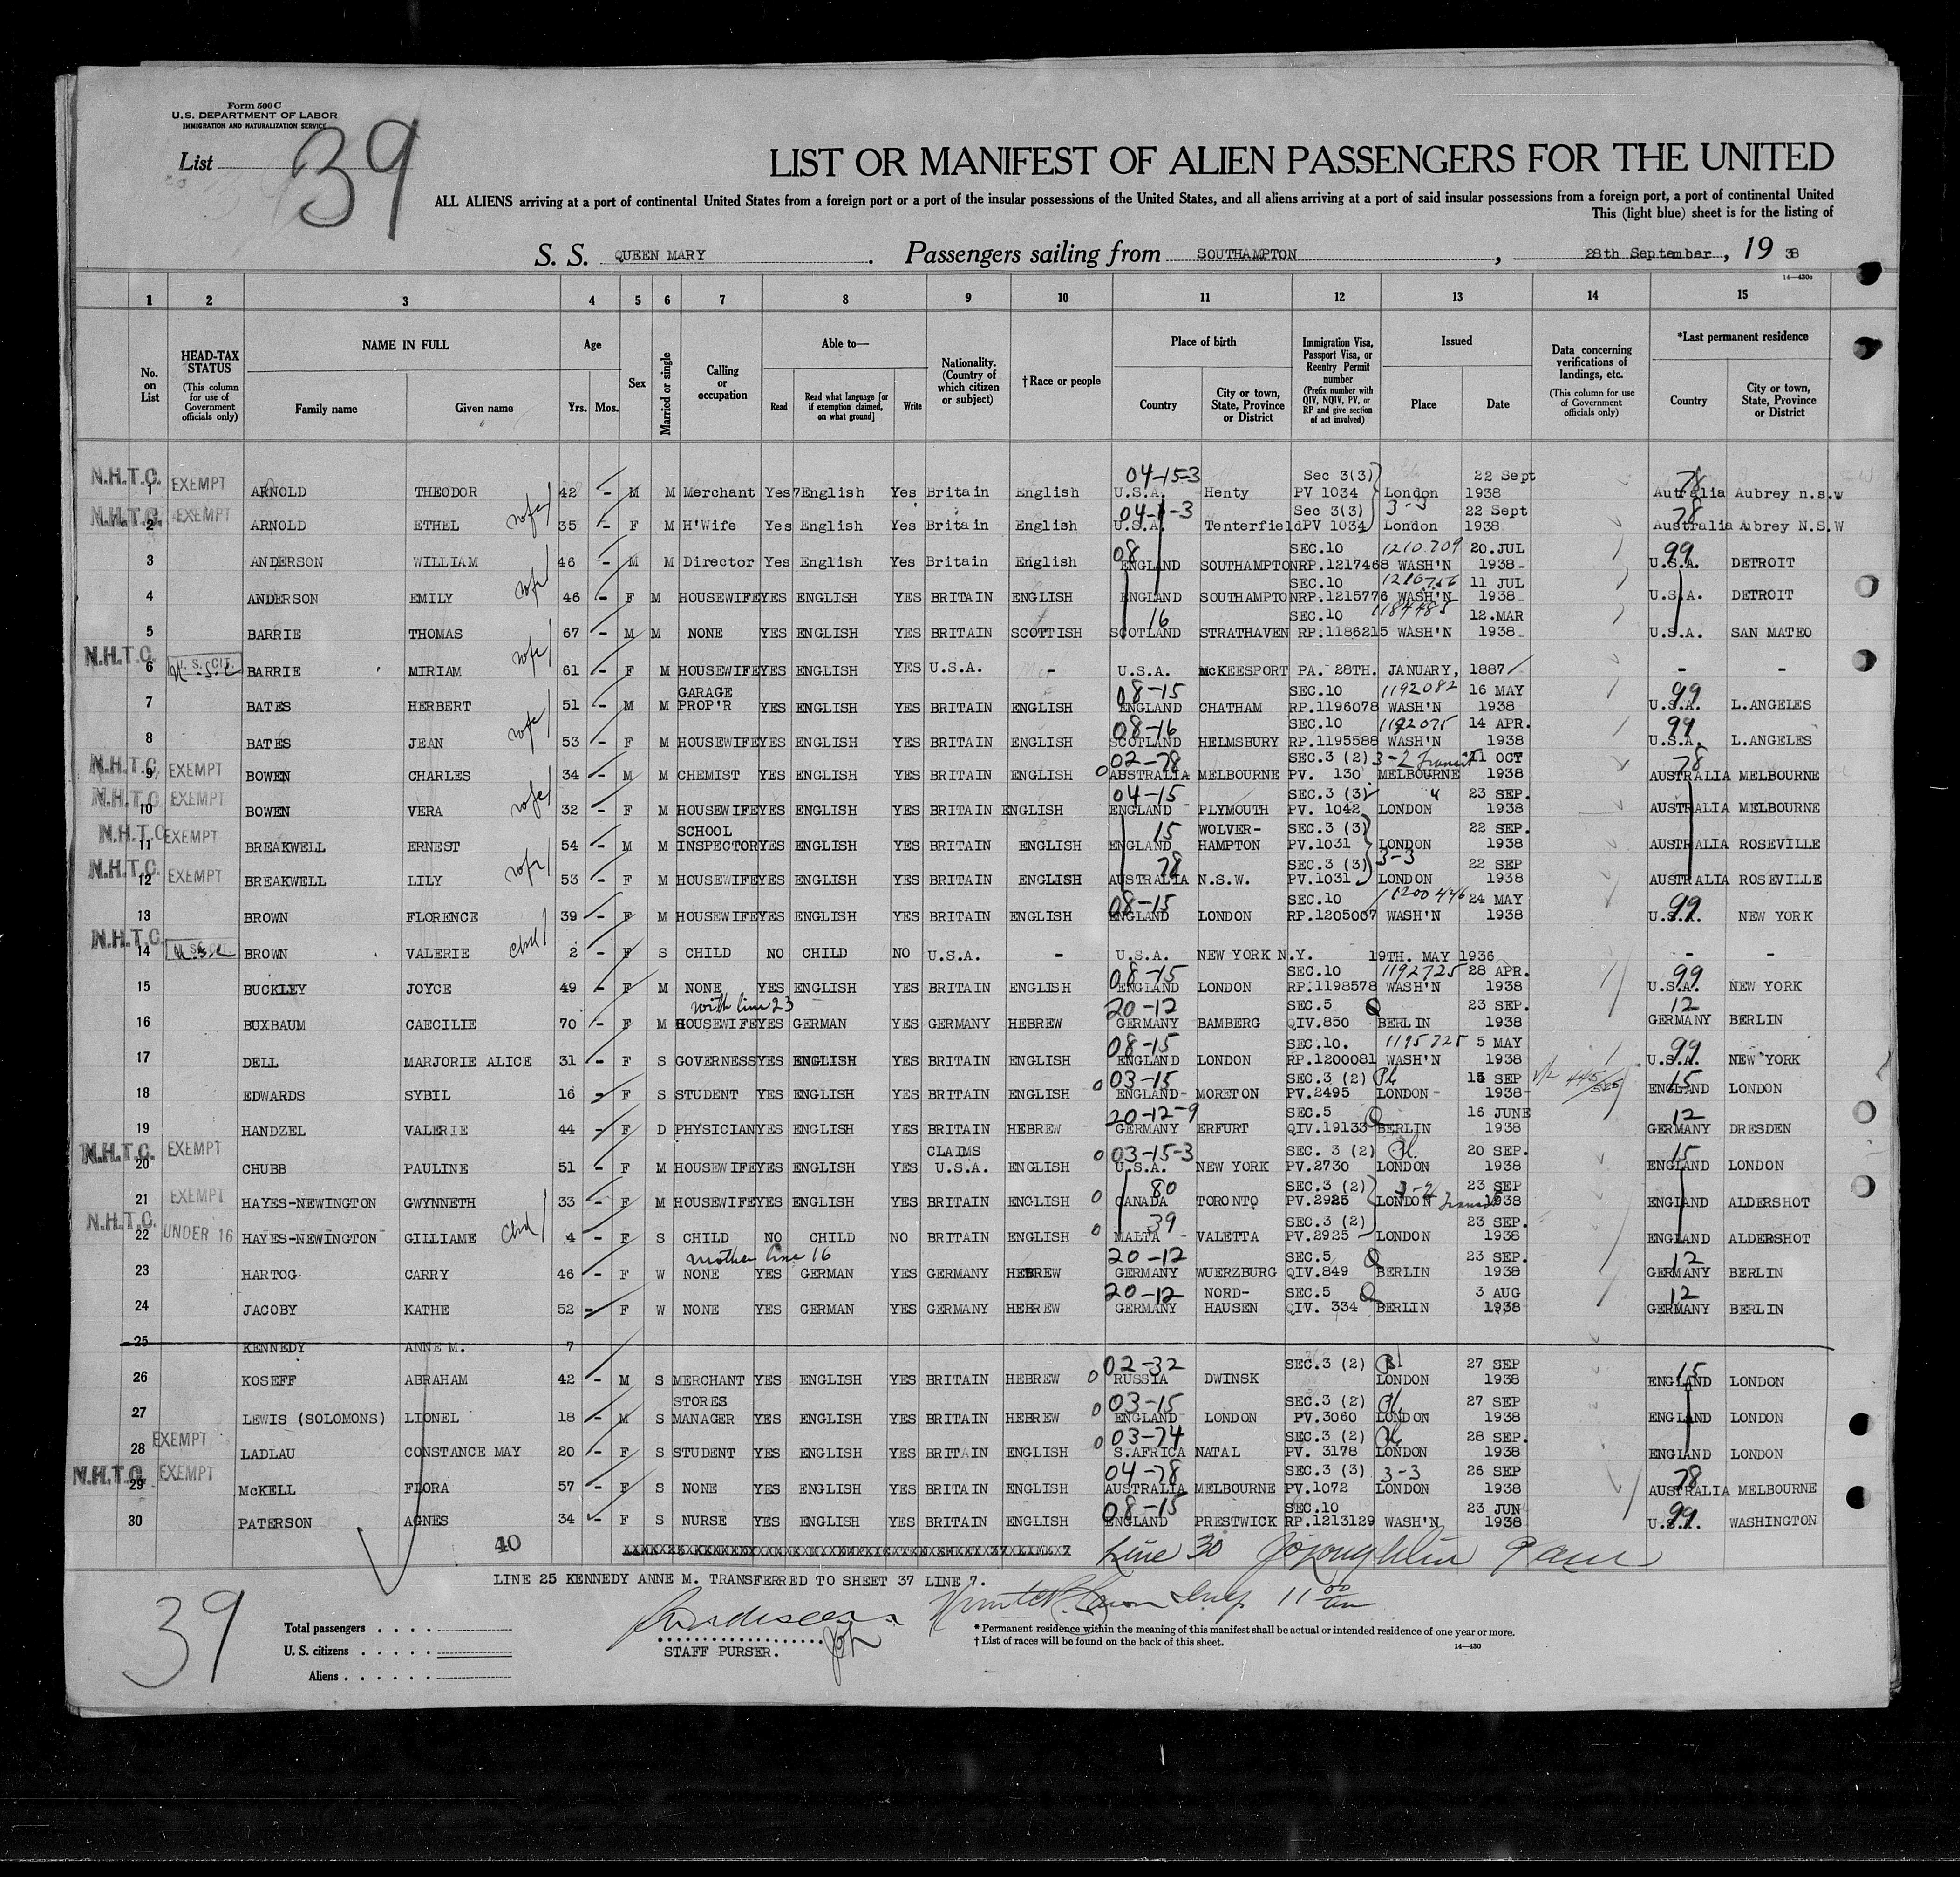 Form 500 C
U.S. DEPARTMENT OF LABOR
IMMIGRATION AND NATURALIZATION SERVICE
List 39
LIST OR MANIFEST OF ALIEN PASSENGERS FOR THE UNITED
ALL ALIENS arriving at a port of continental United States from a foreign port or a port of the insular possessions of the United States, and all aliens arriving at a port of said insular possessions from a foreign port, a port of continental United
This (light blue) sheet is for the listing of
S. S. QUEEN MARY. Passengers sailing from SOUTHAMPTON, 28th September, 19 38
14—430c
1 2 3 4 5 6 7 8 9 10 11 12 13 14 15
No. on List
HEAD-TAX STATUS (This column for use of Government officials only)
NAME IN FULL Family name Given name
Age Yrs. Mos.
Sex
Married or single
Calling or occupation
Able to— Read Read what language [or if exemption claimed, on what ground] Write
Nationality. (Country of which citizen or subject)
†Race or people
Place of birth Country City or town, State, Province or District
Immigration Visa, Passport Visa, or Reentry Permit number (Prefix number with QIV, NQIV, PV, or RP and give section of act involved)
Issued Place Date
Data concerning verifications of landings, etc. (This column for use of Government officials only)
*Last permanent residence Country City or town, State, Province or District
N.H.T.C. 04-15-3 Sec 3(3) 22 Sept 78
1 EXEMPT ARNOLD THEODOR 42 - M M Merchant Yes English Yes Britain English U.S.A. Henty PV 1034 London 1938 Autralia Aubrey n.s.w
N.H.T.C. Sec 3(3) 3-3 22 Sept 78
2 EXEMPT ARNOLD ETHEL wife 35 - F M H'Wife Yes English Yes Britain English U.S.A. Tenterfield PV 1034 London 1938 Australia Aubrey N.S.W
08 SEC.10 1210709 20.JUL 99
3 ANDERSON WILLIAM 46 - M M Director Yes English Yes Britain English ENGLAND SOUTHAMPTON RP.1217468 WASH'N 1938- U.S.A. DETROIT
SEC.10 11 JUL
4 ANDERSON EMILY wife 46 - F M HOUSEWIFE YES ENGLISH YES BRITAIN ENGLISH ENGLAND SOUTHAMPTON RP.1215776 WASH'N 1938- U.S.A. DETROIT
16 SEC.10 1184485 12.MAR
5 BARRIE THOMAS 67 - M M NONE YES ENGLISH YES BRITAIN SCOTTISH SCOTLAND STRATHAVEN RP.1186215 WASH'N 1938- U.S.A. SAN MATEO
N.H.T.C. U.S. CIT.
6 U.S.C BARRIE MIRIAM wife 61 - F M HOUSEWIFE YES ENGLISH YES U.S.A. - U.S.A. McKEESPORT PA. 28TH. JANUARY, 1887 - -
GARAGE 08-15 SEC.10 1192082 16 MAY 99
7 BATES HERBERT 51 - M M PROP'R YES ENGLISH YES BRITAIN ENGLISH ENGLAND CHATHAM RP.1196078 WASH'N 1938 U.S.A. L.ANGELES
08-16 SEC.10 1192075 14 APR. 99
8 BATES JEAN wife 53 - F M HOUSEWIFE YES ENGLISH YES BRITAIN ENGLISH SCOTLAND HELMSBURY RP.1195588 WASH'N 1938 U.S.A. L.ANGELES
N.H.T.C. 02-78 SEC.3 (2) 3-2 Transit 11 OCT 78
9 EXEMPT BOWEN CHARLES 34 - M M CHEMIST YES ENGLISH YES BRITAIN ENGLISH 0 AUSTRALIA MELBOURNE PV. 130 MELBOURNE 1938 AUSTRALIA MELBOURNE
N.H.T.C. 04-15 SEC.3 (3) " 23 SEP.
10 EXEMPT BOWEN VERA wife 32 - F M HOUSEWIFE YES ENGLISH YES BRITAIN ENGLISH ENGLAND PLYMOUTH PV. 1042 LONDON 1938 AUSTRALIA MELBOURNE
N.H.T.C. SCHOOL 15 WOLVER- SEC.3 (3) 22 SEP.
11 EXEMPT BREAKWELL ERNEST 54 - M M INSPECTOR YES ENGLISH YES BRITAIN ENGLISH ENGLAND HAMPTON PV.1031 LONDON 1938 AUSTRALIA ROSEVILLE
N.H.T.C. 78 SEC.3 (3) 3-3 22 SEP
12 EXEMPT BREAKWELL LILY wife 53 - F M HOUSEWIFE YES ENGLISH YES BRITAIN ENGLISH AUSTRALIA N.S.W. PV.1031 LONDON 1938 AUSTRALIA ROSEVILLE
08-15 SEC.10 1200446 24 MAY 99
13 BROWN FLORENCE 39 - F M HOUSEWIFE YES ENGLISH YES BRITAIN ENGLISH ENGLAND LONDON RP.1205007 WASH'N 1938 U.S.A. NEW YORK
N.H.T.C.
14 U.S.C BROWN VALERIE chd 2 - F S CHILD NO CHILD NO U.S.A. - U.S.A. NEW YORK N.Y. 19TH. MAY 1936 - -
08-15 SEC.10 1192725 28 APR. 99
15 BUCKLEY JOYCE 49 - F M NONE YES ENGLISH YES BRITAIN ENGLISH ENGLAND LONDON RP.1198578 WASH'N 1938 U.S.A. NEW YORK
with line 23 20-12 SEC.5 Q 23 SEP. 12
16 BUXBAUM CAECILIE 70 - F M HOUSEWIFE YES GERMAN YES GERMANY HEBREW GERMANY BAMBERG QIV.850 BERLIN 1938 GERMANY BERLIN
08-15 SEC.10. 1195725 5 MAY 99
17 DELL MARJORIE ALICE 31 - F S GOVERNESS YES ENGLISH YES BRITAIN ENGLISH ENGLAND LONDON RP.1200081 WASH'N 1938 U.S.A. NEW YORK
03-15 SEC.3 (2) Pl. 15 SEP 15
18 EDWARDS SYBIL 16 - F S STUDENT YES ENGLISH YES BRITAIN ENGLISH 0 ENGLAND- MORETON PV.2495 LONDON- 1938- ENGLAND LONDON
20-12-9 SEC.5 Q 16 JUNE 12
19 HANDZEL VALERIE 44 - F D PHYSICIAN YES ENGLISH YES BRITAIN HEBREW GERMANY ERFURT QIV.19133 BERLIN 1938 GERMANY DRESDEN
N.H.T.C. CLAIMS 03-15-3 SEC. 3 (2) Pl. 20 SEP. 15
20 EXEMPT CHUBB PAULINE 51 - F M HOUSEWIFE YES ENGLISH YES U.S.A. ENGLISH 0 U.S.A. NEW YORK PV.2730 LONDON 1938 ENGLAND LONDON
80 SEC.3 (2) 3-2 Transit 23 SEP
21 EXEMPT HAYES-NEWINGTON GWYNNETH 33 - F M HOUSEWIFE YES ENGLISH YES BRITAIN ENGLISH 0 CANADA TORONTO PV.2925 LONDON 1938 ENGLAND ALDERSHOT
N.H.T.C. 39 SEC.3 (2) 23 SEP.
22 UNDER 16 HAYES-NEWINGTON GILLIAME chd 4 - F S CHILD NO CHILD NO BRITAIN ENGLISH 0 MALTA - VALETTA PV.2925 - LONDON 1938 ENGLAND ALDERSHOT
mother line 16 20-12 SEC.5 Q 23 SEP. 12
23 HARTOG CARRY 46 - F W NONE YES GERMAN YES GERMANY HEBREW GERMANY WUERZBURG QIV.849 BERLIN 1938 GERMANY BERLIN
20-12 NORD- SEC.5 Q 3 AUG 12
24 JACOBY KATHE 52 - F W NONE YES GERMAN YES GERMANY HEBREW GERMANY HAUSEN QIV. 334 BERLIN 1938 GERMANY BERLIN
25 KENNEDY ANNE M. 7
02-32 SEC.3 (2) 27 SEP 15
26 KOSEFF ABRAHAM 42 - M S MERCHANT YES ENGLISH YES BRITAIN HEBREW 0 RUSSIA DWINSK LONDON 1938 ENGLAND LONDON
STORES 03-15 SEC.3 (2) Pl. 27 SEP
27 LEWIS (SOLOMONS) LIONEL 18 - M S MANAGER YES ENGLISH YES BRITAIN HEBREW 0 ENGLAND LONDON PV.3060 LONDON 1938 ENGLAND LONDON
03-74 SEC.3 (2) Pl 28 SEP.
28 EXEMPT LADLAU CONSTANCE MAY 20 - F S STUDENT YES ENGLISH YES BRITAIN ENGLISH 0 S.AFRICA NATAL PV. 3178 LONDON 1938 ENGLAND LONDON
N.H.T.C. 04-78 SEC.3 (3) 3-3 26 SEP 78
29 EXEMPT McKELL FLORA 57 - F S NONE YES ENGLISH YES BRITAIN ENGLISH AUSTRALIA MELBOURNE PV.1072 LONDON 1938 AUSTRALIA MELBOURNE
08-15 SEC.10 23 JUN 99
30 PATERSON AGNES 34 - F S NURSE YES ENGLISH YES BRITAIN ENGLISH ENGLAND PRESTWICK RP.1213129 WASH'N 1938 U.S.A. WASHINGTON
40 Line 30
LINE 25 KENNEDY ANNE M. TRANSFERRED TO SHEET 37 LINE 7.
39
Total passengers
U. S. citizens
Aliens
STAFF PURSER.
11 00 am
* Permanent residence within the meaning of this manifest shall be actual or intended residence of one year or more.
† List of races will be found on the back of this sheet.
14—430